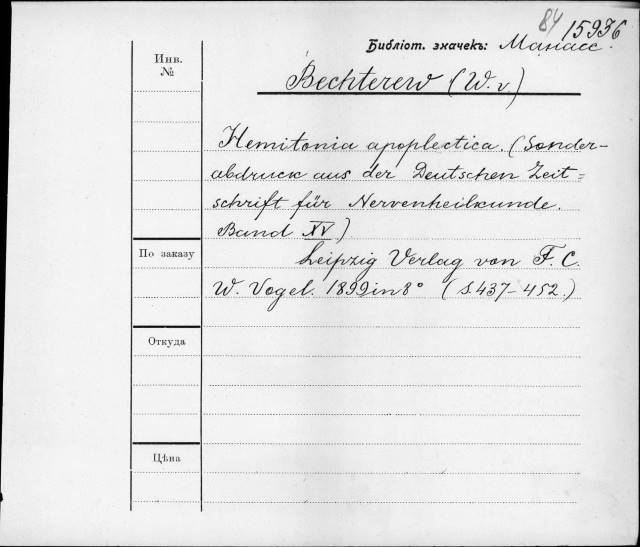 84 15936
Библіот. значекъ: Манасс.
Инв.
№
Bechterew (W. v)
Hemitonia apoplectica. (Sonder-
abdruck aus der Deutschen Zeit=
schrift für Nervenheilkunde.
Band XV)
По заказу
Leipzig Verlag von F. C.
W. Vogel. 1899 in 8° (S. 437-452.)
Откуда
Цѣна